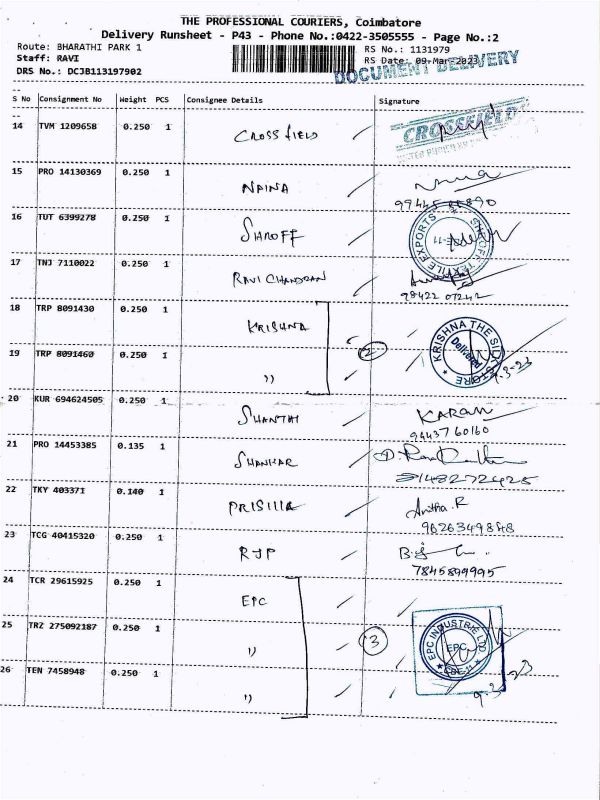 THE PROFESSIONAL COURIERS, Coimbatore
Delivery Runsheet - P43 - Phone No.:0422-3505555 - Page No.:2
Route: BHARATHI PARK 1
RS No.: 1131979
Staff: RAVI
RS Date: 09-Mar-2023
DRS No.: DCJB113197902
DOCUMENT DELIVERY
S No Consignment No Weight PCS Consignee Details Signature
14 TVM 1209658 0.250 1 CROSSFIELD
CROSSFIELD
15 PRO 14130369 0.250 1 NAINA
16 TUT 6399278 0.250 1 SHROFF
SHROFF TEXTILE EXPORTS
17 TNJ 7110022 0.250 1 RAVI CHANDRAN
98422 07242
18 TRP 8091430 0.250 1 KRISHNA
KRISHNA THE SILK STORE
Delivered
19 TRP 8091460 0.250 1 ))
2
9.3-23
20 KUR 694624505 0.250 1 SHANTHI KARAN
94437 60160
21 PRO 14453385 0.135 1 SHANKAR
22 TKY 403371 0.140 1 PRISILLA Anitha.R
9626349848
23 TCG 40415320 0.250 1 RJP
7845899995
24 TCR 29615925 0.250 1 EPC
25 TRZ 275092187 0.250 1 ))
3
EPC INDUSTRIE LTD.
EPC
26 TEN 7458948 0.250 1 ))